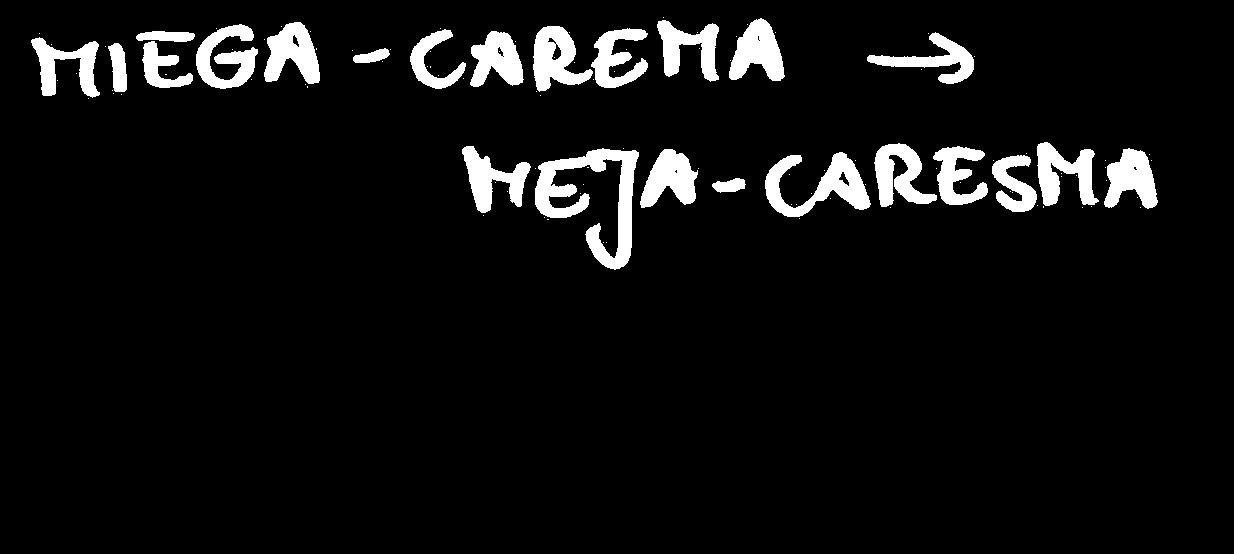 MIEGA-CAREMA →
MEJA-CARESMA